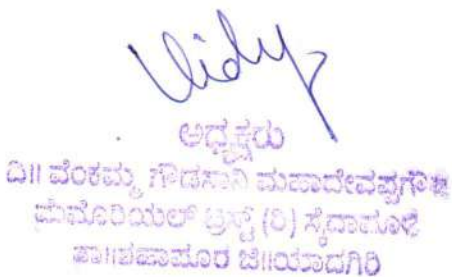 Vidy
ಅಧ್ಯಕ್ಷರು
ದಿ|| ವೆಂಕಮ್ಮ ಗೌಡಸಾನಿ ಮಹಾದೇವಪ್ಪಗೌಡ
ಮೆಮೊರಿಯಲ್ ಟ್ರಸ್ಟ್ (ರಿ)
ತಾ||ಶಹಾಪೂರ ಜಿ||ಯಾದಗಿರಿ